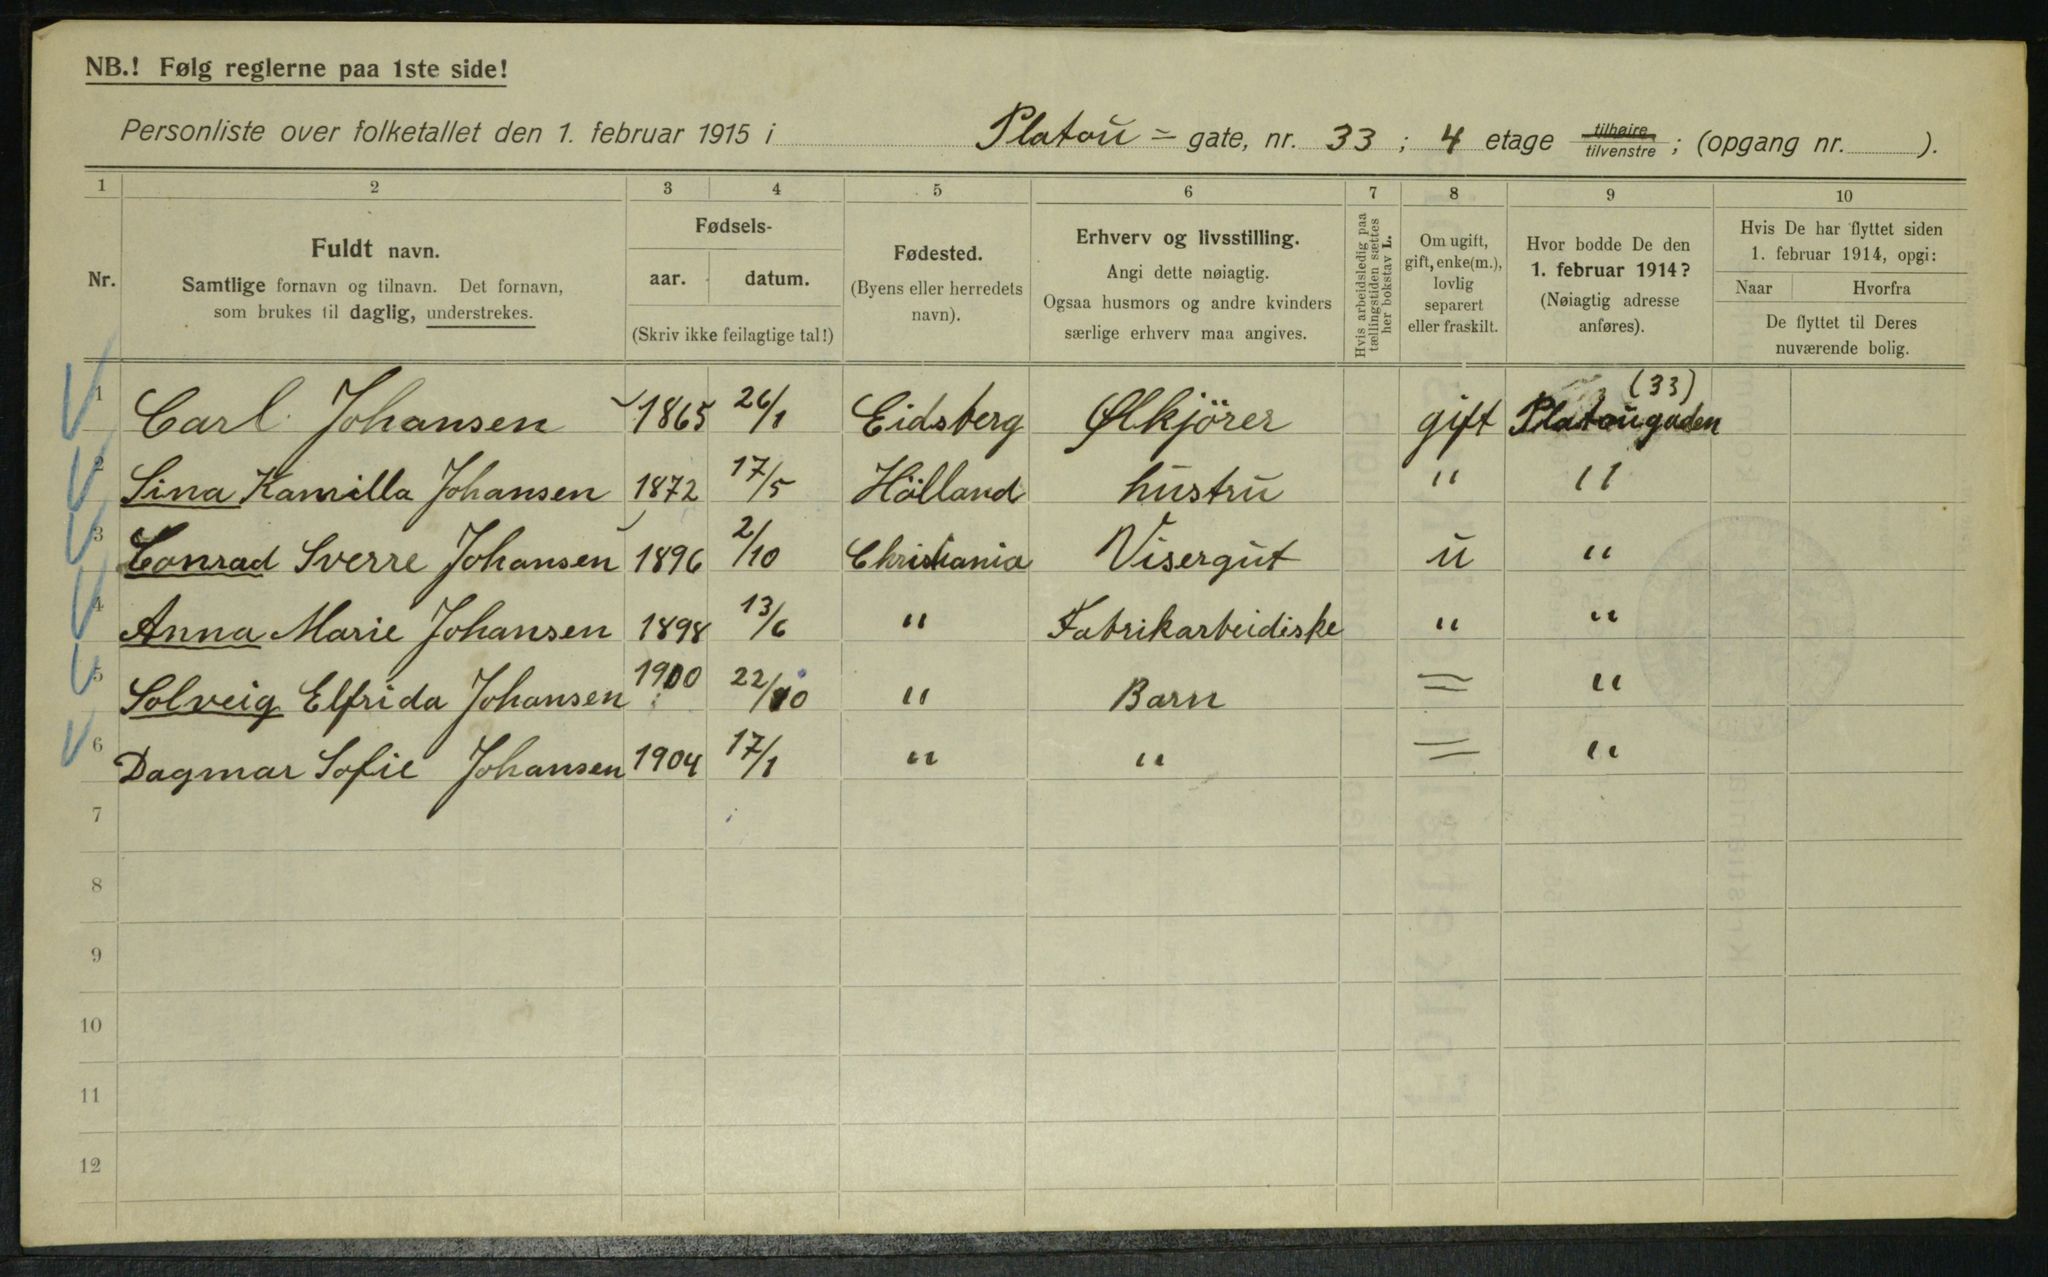 NB.! Følg reglerne paa 1ste side!
Personliste over folketallet den 1. februar 1915 i Platou = gate, nr. 33 ; 4 etage tilhøire tilvenstre ; (opgang nr. ).
1 2 3 4 5 6 7 8 9 10
Nr.
Fuldt navn.
Samtlige fornavn og tilnavn. Det fornavn,
som brukes til daglig, understrekes.
Fødsels-
aar. datum.
(Skriv ikke feilagtige tal!)
Fødested.
(Byens eller herredets
navn).
Erhverv og livsstilling.
Angi dette nøiagtig.
Ogsaa husmors og andre kvinders
særlige erhverv maa angives.
Hvis arbeidsledig paa
tællingstiden sættes
her bokstav L.
Om ugift,
gift, enke(m.),
lovlig
separert
eller fraskilt.
Hvor bodde De den
1. februar 1914?
(Nøiagtig adresse
anføres).
Hvis De har flyttet siden
1. februar 1914, opgi:
Naar Hvorfra
De flyttet til Deres
nuværende bolig.
1 Carl Johansen 1865 26/1 Eidsberg Ølkjörer gift Platougaden (33)
2 Sina Kamilla Johansen 1872 17/5 Hölland hustru " "
3 Conrad Sverre Johansen 1896 2/10 Christiania Visergut u "
4 Anna Marie Johansen 1898 13/6 " Fabrikarbeidiske " "
5 Solveig Elfrida Johansen 1900 22/10 " Barn = "
6 Dagmar Sofie Johansen 1904 17/1 " " = "
7
8
9
10
11
12